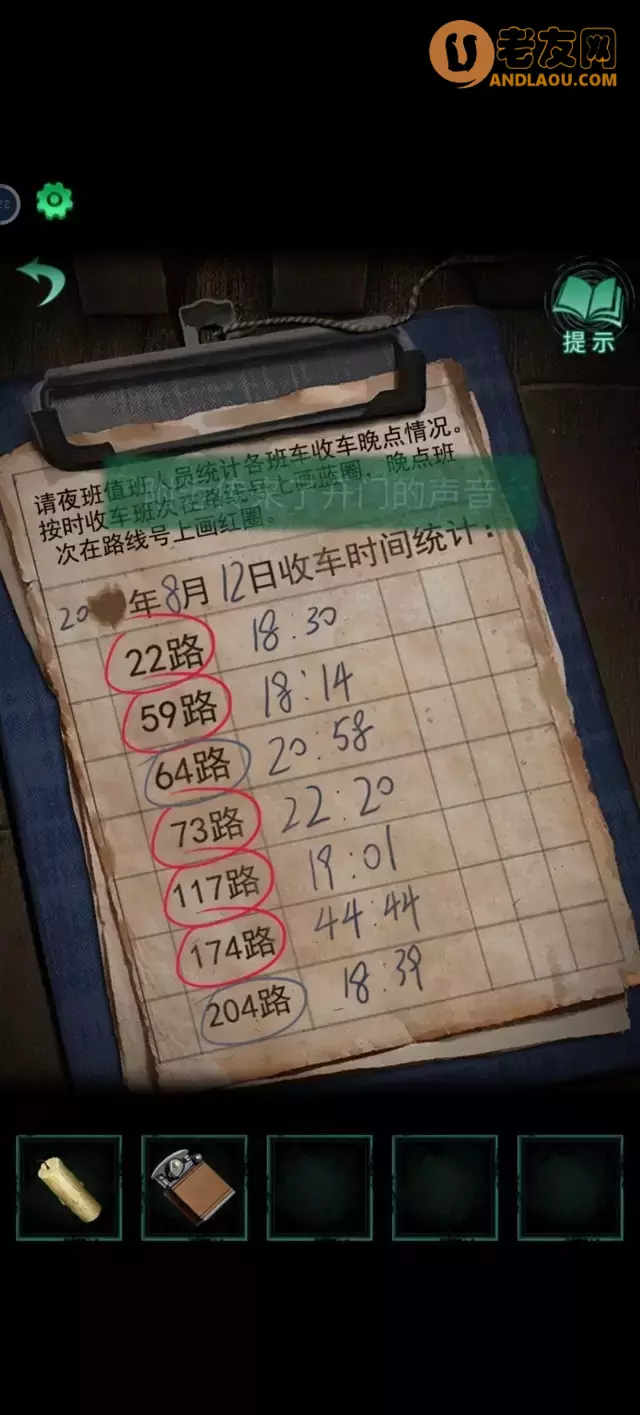 老友网
ANDLAOU.COM
22
提示
请夜班值班人员统计各班车收车晚点情况。
按时收车班次在路线号上画蓝圈，晚点班
次在路线号上画红圈。
来了开门的声音
20 年8月12日收车时间统计：
22路 18:30
59路 18:14
64路 20:58
73路 22:20
117路 19:01
174路 44:44
204路 18:39